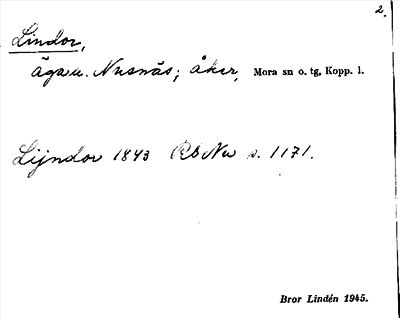 2.
Lindor,
äga u. Nusnäs; åker, Mora sn o. tg, Kopp. l.
Lijndor 1843 RS Nu s. 1171.
Bror Lindén 1945.